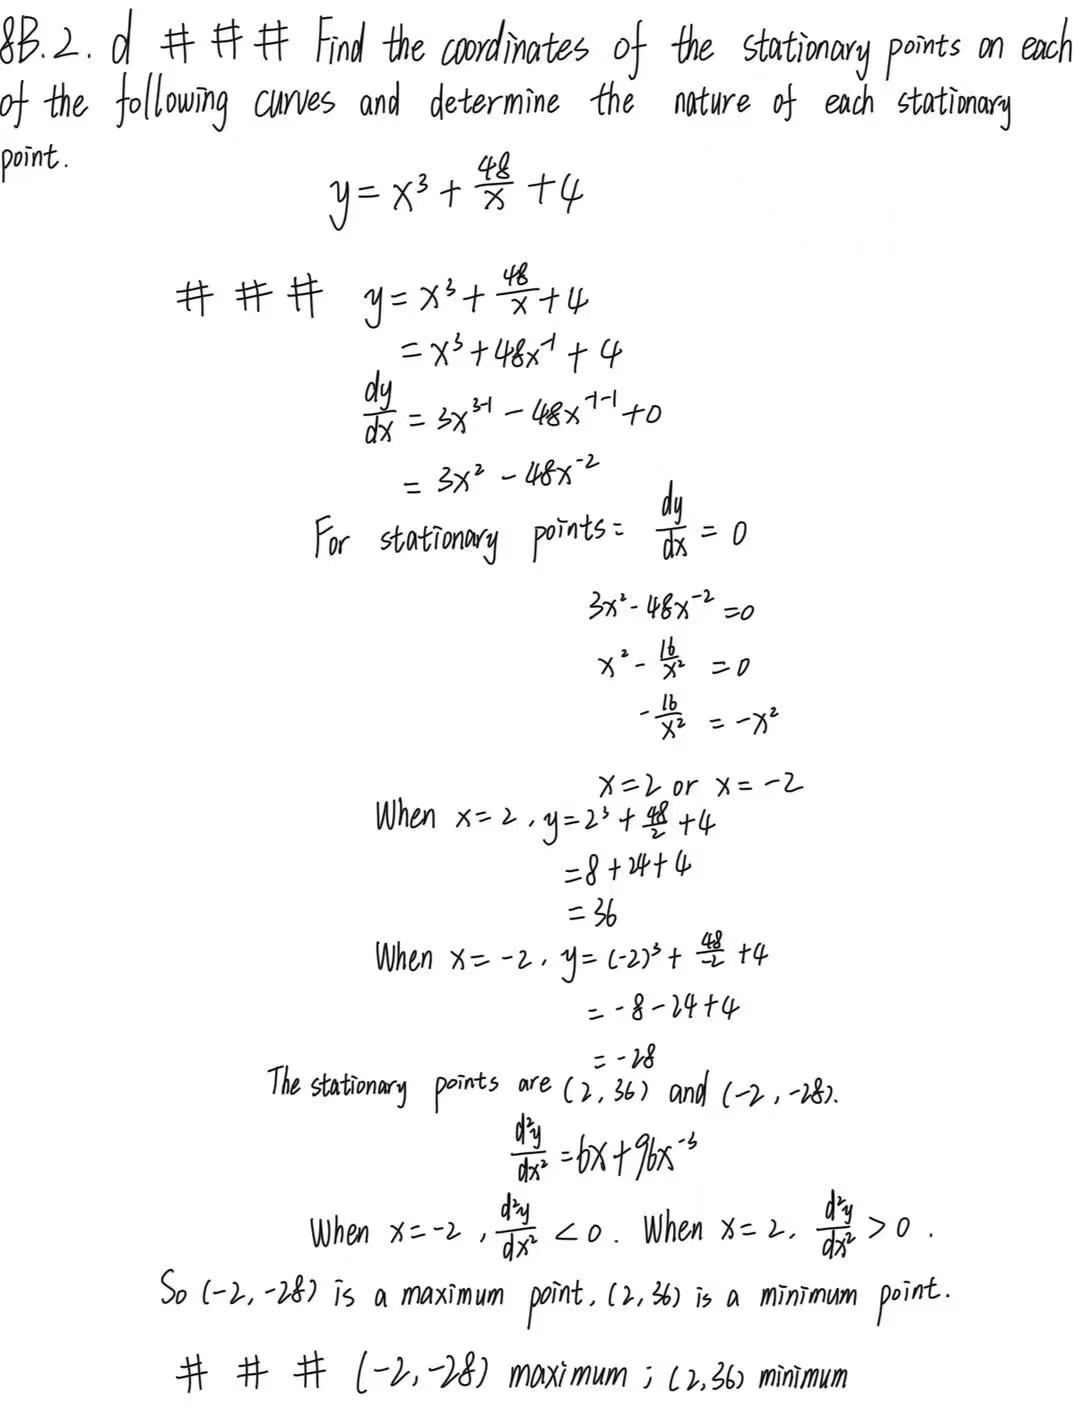 8B.2. d # # # Find the coordinates of the stationary points on each
of the following curves and determine the nature of each stationary
point.
y = x³ + 48/x + 4
# # # y = x³ + 48/x + 4
= x³ + 48x⁻¹ + 4
dy/dx = 3x³⁻¹ - 48x⁻¹⁻¹ + 0
= 3x² - 48x⁻²
For stationary points: dy/dx = 0
3x² - 48x⁻² = 0
x² - 16/x² = 0
- 16/x² = -x²
x = 2 or x = -2
When x = 2, y = 2³ + 48/2 + 4
= 8 + 24 + 4
= 36
When x = -2, y = (-2)³ + 48/-2 + 4
= -8 - 24 + 4
= -28
The stationary points are (2, 36) and (-2, -28).
d²y/dx² = 6x + 96x⁻³
When x = -2, d²y/dx² < 0. When x = 2, d²y/dx² > 0.
So (-2, -28) is a maximum point, (2, 36) is a minimum point.
# # # (-2, -28) maximum ; (2, 36) minimum